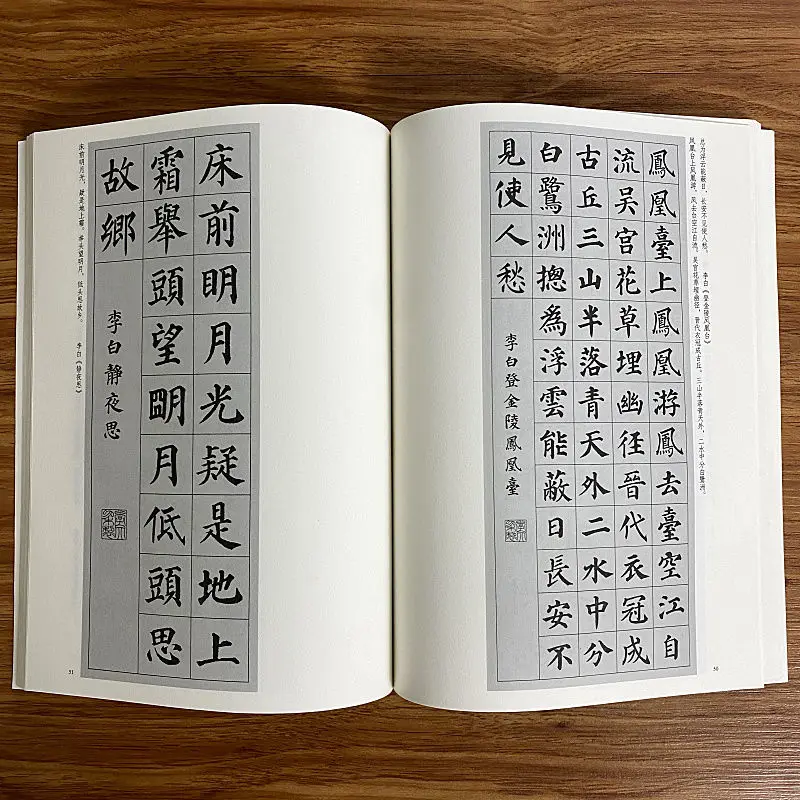 凤凰台上凤凰游，凤去台空江自流。吴宫花草埋幽径，晋代衣冠成古丘。三山半落青天外，二水中分白鹭洲。
总为浮云能蔽日，长安不见使人愁。 李白《登金陵凤凰台》
鳳凰臺上鳳凰游鳳去臺空江自
流吴宫花草埋幽徑晉代衣冠成
古丘三山半落青天外二水中分
白鷺洲摠為浮雲能蔽日長安不
見使人愁
李白登金陵鳳凰臺
50
床前眀月光疑是地上
霜舉頭望朙月低頭思
故鄉
李白静夜思
床前明月光，疑是地上霜。举头望明月，低头思故乡。 李白《静夜思》
51